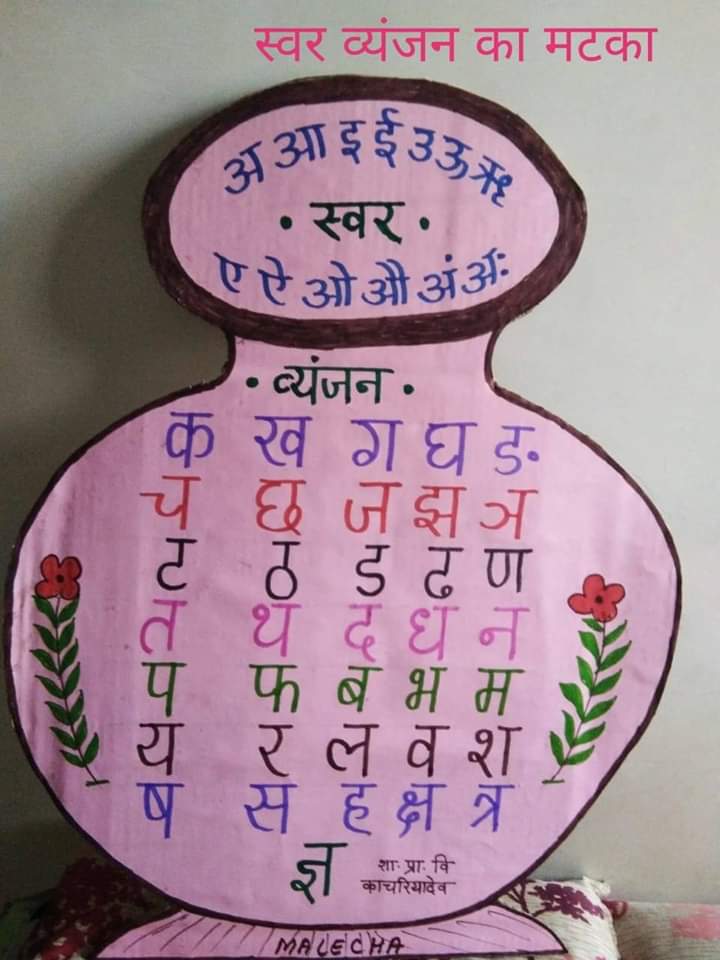 स्वर व्यंजन का मटका
अ आ इ ई उ ऊ ऋ
• स्वर •
ए ऐ ओ औ अं अः
• व्यंजन •
क ख ग घ ङ
च छ ज झ ञ
ट ठ ड ढ ण
त थ द ध न
प फ ब भ म
य र ल व श
ष स ह क्ष त्र
ज्ञ
शा. प्रा. वि
काचरियादेव
MALECHA